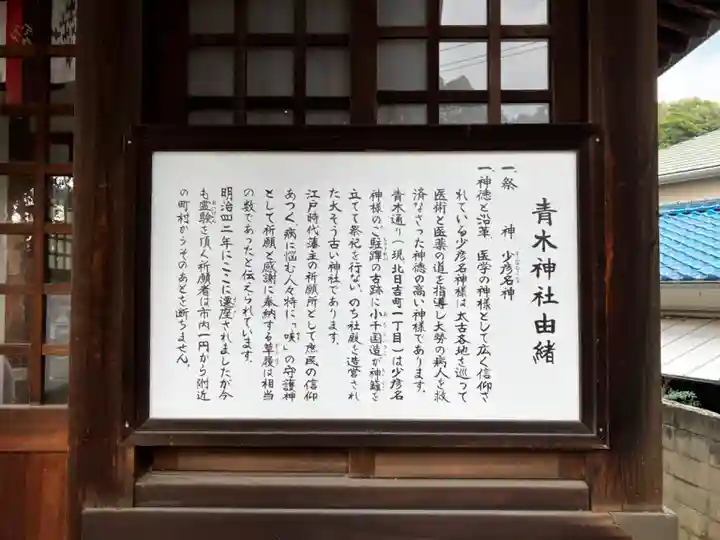 青木神社由緒
一、祭　　神　少彦名神
一、神徳と沿革　医学の神様として広く信仰さ
れている少彦名神様は太古各地を巡って
医術と医薬の道を指導し大勢の病人を救
済なさった神徳の高い神様であります。
青木通り(現北日吉町一丁目)は少彦名
神様のご駐蹕の古跡に小千国造が神籬を
立てて祭祀を行ない、のち社殿を造営され
た大そう古い神社であります。
江戸時代藩主の祈願所として庶民の信仰
あつく病に悩む人々特に「咳」の守護神
として祈願と感謝に奉納する草履は相当
の数であったと伝えられています。
明治四二年にここに遷座されましたが今
も霊験を頂く祈願者は市内一円から附近
の町村からそのあとを断ちません。